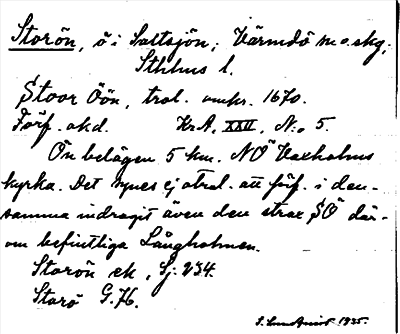 Storön, ö i Saltsjön; Värmdö m o skg;
Sthlms l.
Stoor Öön, trol. omkr. 1670.
Förf. okd. KrA, XXII, No 5.
Ön belägen 5 km. NÖ Vaxholms
kyrka. Det synes ej otrol. att förf. i den-
samma indragit även den strax SÖ där-
om befintliga Långholmen.
Storön ek, Sj. 234.
Storö G.76.
1935.